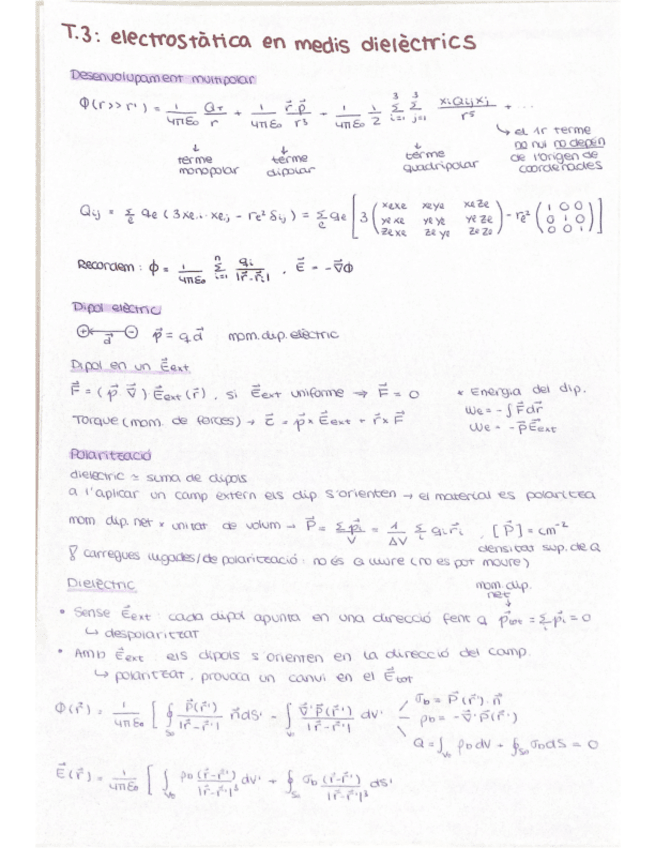 T.3: electrostàtica en medis dielèctrics
Desenvolupament multipolar
Φ(r>>r') = 1/4πε₀ Q_T/r + 1/4πε₀ r⃗ p⃗/r³ + 1/4πε₀ 1/2 Σ_{i=1}^{3} Σ_{j=1}^{3} x_i Q_ij x_j/r⁵ + ...
↓ terme monopolar ↓ terme dipolar ↓ terme quadripolar
↳ el 1r terme no nul no depèn de l'origen de coordenades
Q_ij = Σ_e q_e (3 x_e,i · x_e,j - r_e² δ_ij) = Σ_e q_e [ 3 ( x_e x_e x_e y_e x_e z_e / y_e x_e y_e y_e y_e z_e / z_e x_e z_e y_e z_e z_e ) - r_e² ( 1 0 0 / 0 1 0 / 0 0 1 ) ]
Recordem: ϕ = 1/4πε₀ Σ_{i=1}^{n} q_i/|r⃗-r⃗_i| , E⃗ = -∇⃗ϕ
Dipol elèctric
⊕ ⊖ d⃗ p⃗ = q d⃗ mom. dip. elèctric
Dipol en un E⃗ext
F⃗ = (p⃗ ∇⃗) E⃗ext (r⃗) , si E⃗ext uniforme → F⃗ = 0
* Energia del dip.
We = -∫F⃗dr⃗
Torque (mom. de forces) → τ⃗ = p⃗ × E⃗ext + r⃗ × F⃗
We = -p⃗E⃗ext
Polarització
dielectric ≃ suma de dipols
a l'aplicar un camp extern els dip s'orienten → el material es polaritza
mom dip. net × unitat de volum → P⃗ = Σp⃗i/V = 1/ΔV Σ_i q_i r⃗_i , [P⃗] = cm⁻²
densitat sup. de Q
carregues lligades/de polarització: no és Q lliure (no es pot moure)
Dielèctric
mom. dip. net
↓
• Sense E⃗ext: cada dipol apunta en una direcció fent q p⃗tot = Σ_i p⃗i = 0
↳ despolaritzar
• Amb E⃗ext: els dipols s'orienten en la direcció del camp.
↳ polaritzat, provoca un canvi en el E⃗tot
Φ(r⃗) = 1/4πε₀ [ ∮_S₀ P⃗(r⃗')/|r⃗-r⃗'| n⃗dS' - ∫_V₀ ∇⃗'P⃗(r⃗')/|r⃗-r⃗'| dV'
σb = P⃗(r⃗')·n⃗
ρb = -∇⃗'P⃗(r⃗')
Q = ∫_V₀ ρb dV + ∮_S₀ σb dS = 0
E⃗(r⃗) = 1/4πε₀ [ ∫_V₀ ρb (r⃗-r⃗')/|r⃗-r⃗'|³ dV' + ∮_S₀ σb (r⃗-r⃗')/|r⃗-r⃗'|³ dS'